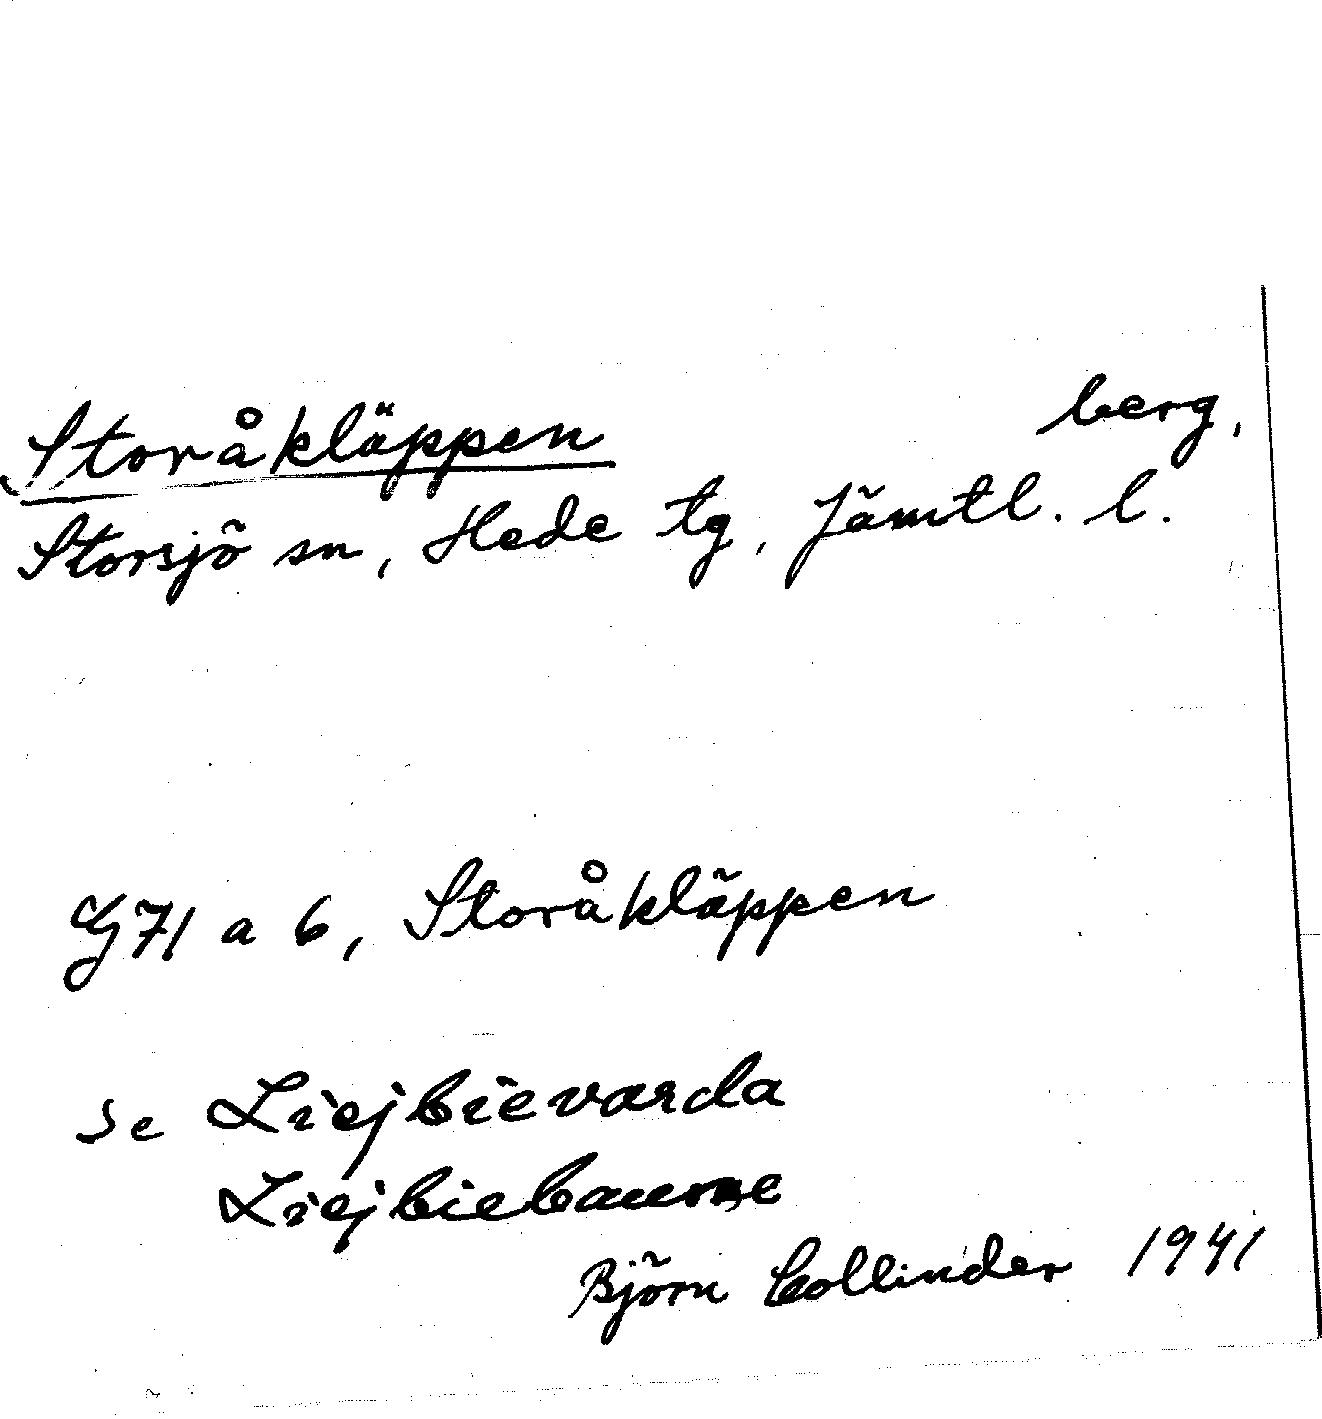 Storåkläppen berg,
Storsjö sn, Hede tg, Jämtl. l.
G71 a 6, Storåkläppen
Se Liejbievarda
Liejbiebaune
Björn Collinder 1941